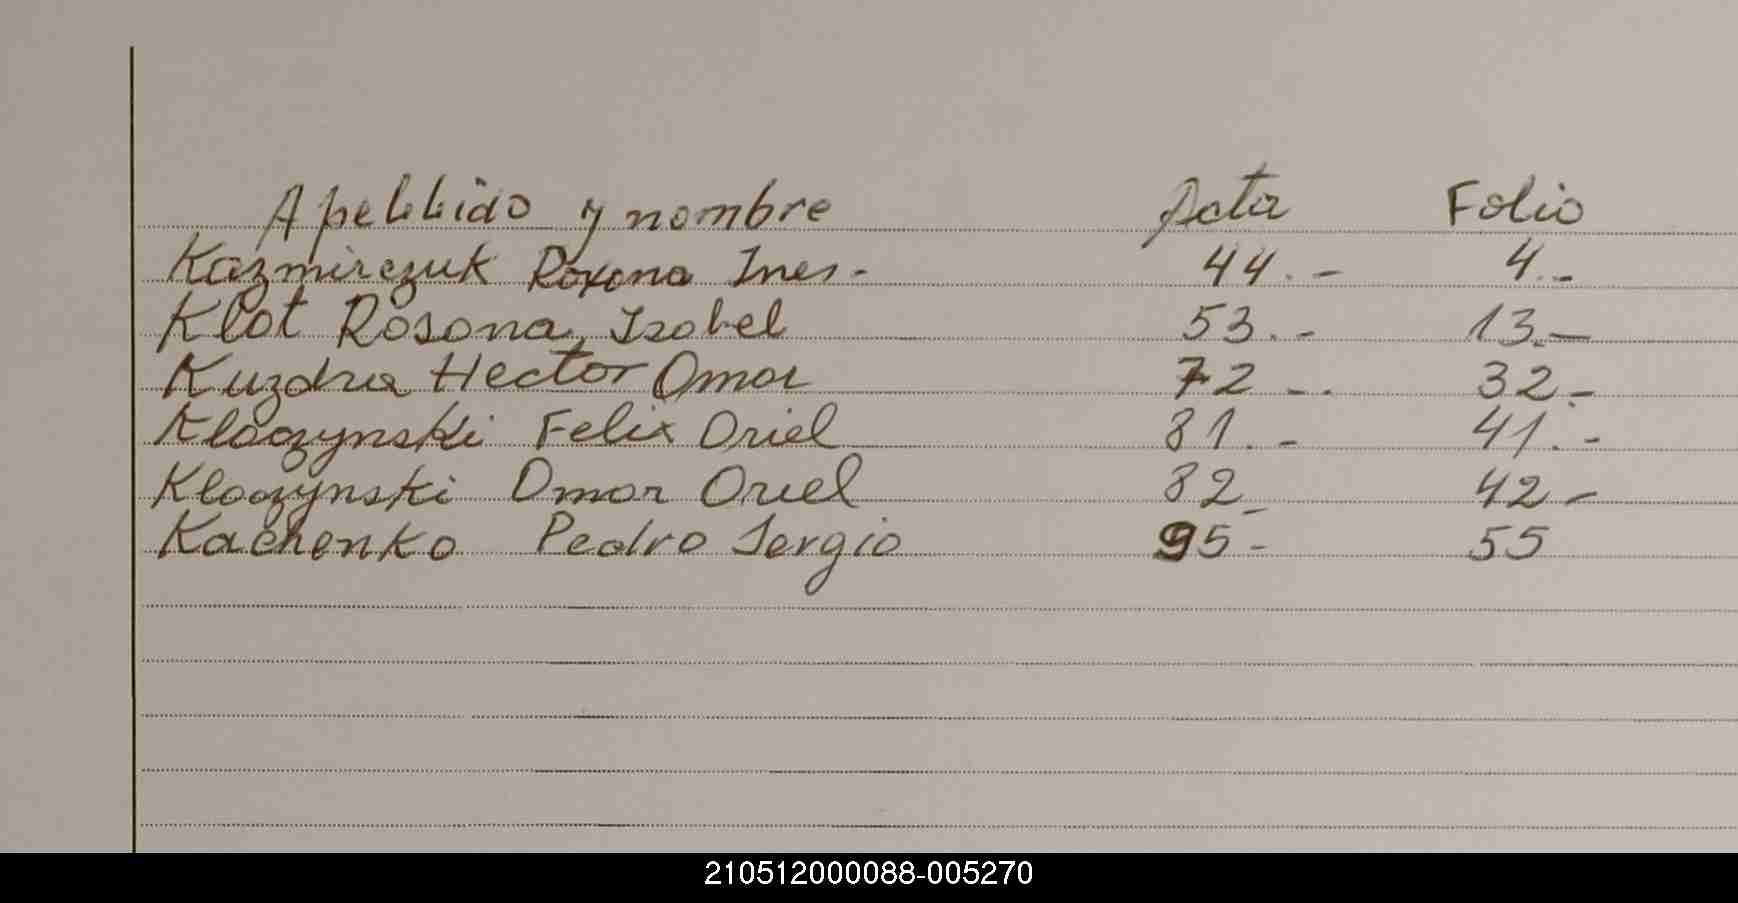 Apellido y nombre Acta Folio
Kazmirczuk Roxana Ines.- 44.- 4.-
Klot Rosana, Isabel 53.- 13.-
Kuzdra Hector Omar 72-. 32.-
Kloczynski Felix Oriel 81.- 41.-
Kloczynski Omar Oriel 82.- 42-
Kachenko Pedro Sergio 95- 55
210512000088-005270